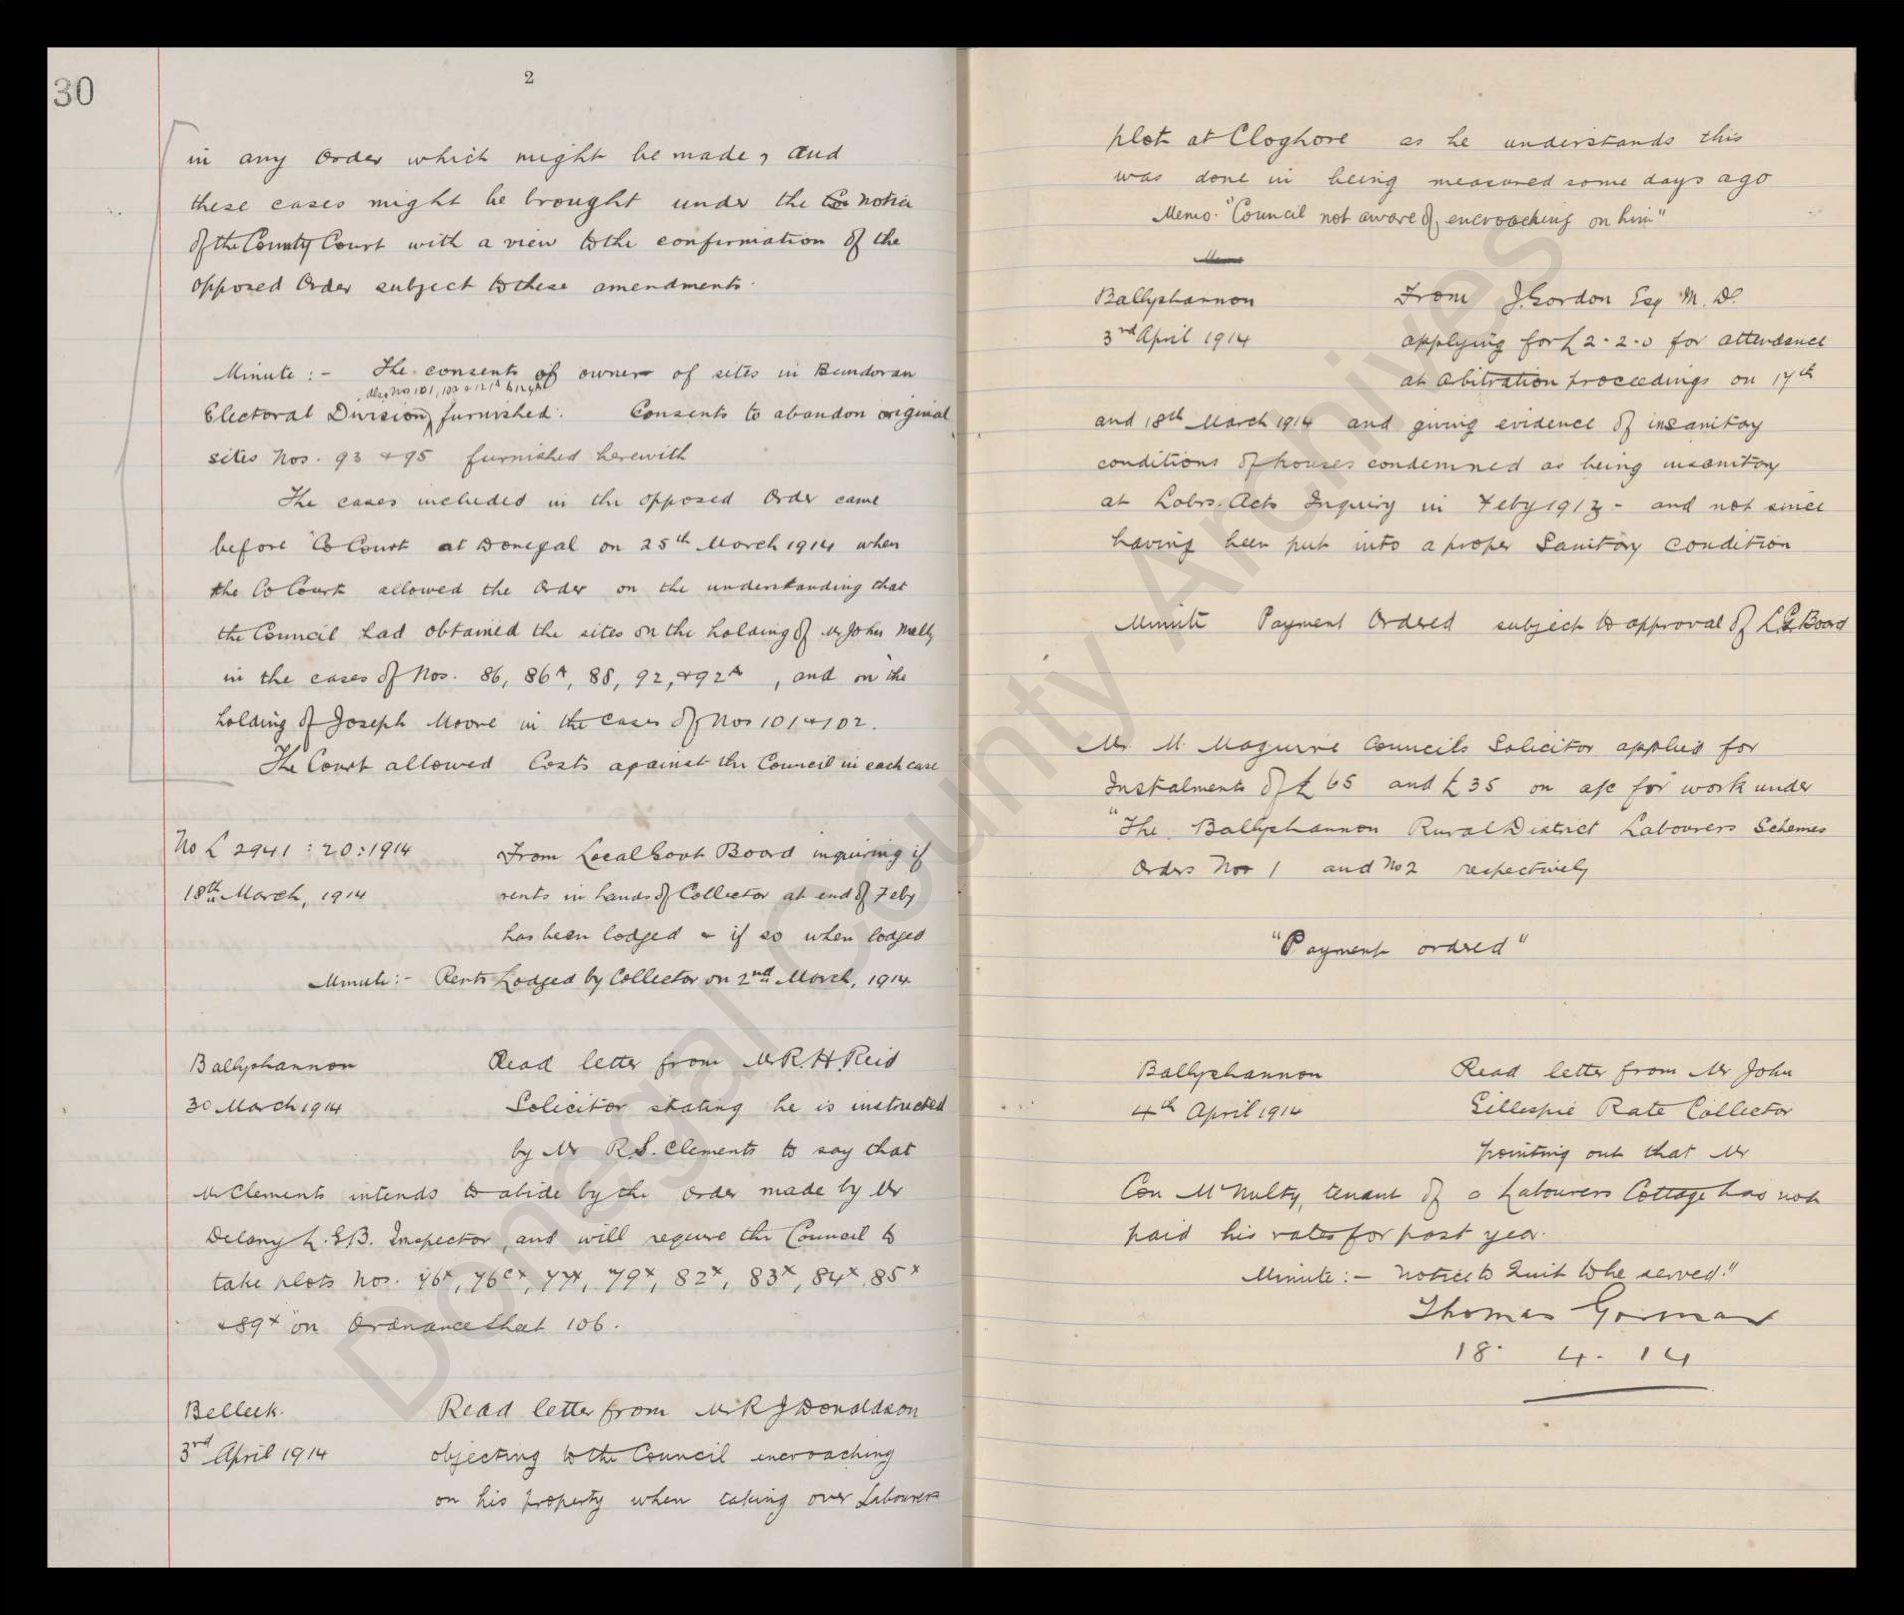 30
2
in any Order which might be made, and
these cases might be brought under the Co notice
of the County Court with a view to the confirmation of the
opposed Order subject to these amendments.
Minute :- The consents of owner of sites in Bundoran
also Nos 101, 102 & 121A & 124A
Electoral Division, furnished. Consents to abandon original
sites Nos. 93 & 95 furnished herewith
The cases included in the opposed Order came
before Co Court at Donegal on 25th March 1914 when
the Co Court allowed the Order on the understanding that
the Council had obtained the sites on the holding of Mr John Melly
in the cases of Nos. 86, 86A, 88, 92, & 92A, and on the
holding of Joseph Moore in the cases of Nos 101 & 102.
The Court allowed Costs against the Council in each case
No L 2941 : 20 : 1914 From Local Govt Board inquiring if
18th March, 1914 rents in hands of Collector at end of Feby
has been lodged & if so when lodged
Minute :- Rents Lodged by Collector on 2nd March, 1914.
Ballyshannon Read letter from Mr R. H. Reid
30 March 1914 Solicitor stating he is instructed
by Mr R. S. Clements to say that
Mr Clements intends to abide by the Order made by Mr
Delany L.G.B. Inspector, and will require the Council to
take plots Nos. 76x, 76cx, 77x, 79x, 82x, 83x, 84x, 85x
& 89x on Ordnance Sheet 106.
Belleek. Read letter from Mr R J Donaldson
3rd April 1914 objecting to the Council encroaching
on his property when taking over Labourers
plot at Cloghore as he understands this
was done in being measured some days ago
Memo. "Council not aware of encroaching on him"
Memo
Ballyshannon From J. Gordon Esq M. D.
3rd April 1914 applying for £2-2-0 for attendance
at Arbitration proceedings on 17th
and 18th March 1914 and giving evidence of insanitary
conditions of houses condemned as being insanitary
at Labrs. Acts Inquiry in Feby 1913 - and not since
having been put into a proper Sanitary condition
Minute Payment Ordered subject to approval of L G Board
Mr. M. Maguire Councils Solicitor applied for
Instalments of £65 and £35 on a/c for work under
"The Ballyshannon Rural District Labourers Schemes
Orders No 1 and No 2 respectively
"Payment ordered"
Ballyshannon Read letter from Mr John
4th April 1914 Gillespie Rate Collector
pointing out that Mr
Con McNulty, tenant of a Labourers Cottage has not
paid his rates for past year.
Minute :- Notice to Quit to be served."
Thomas Gorman
18. 4. 14
Donegal County Archives